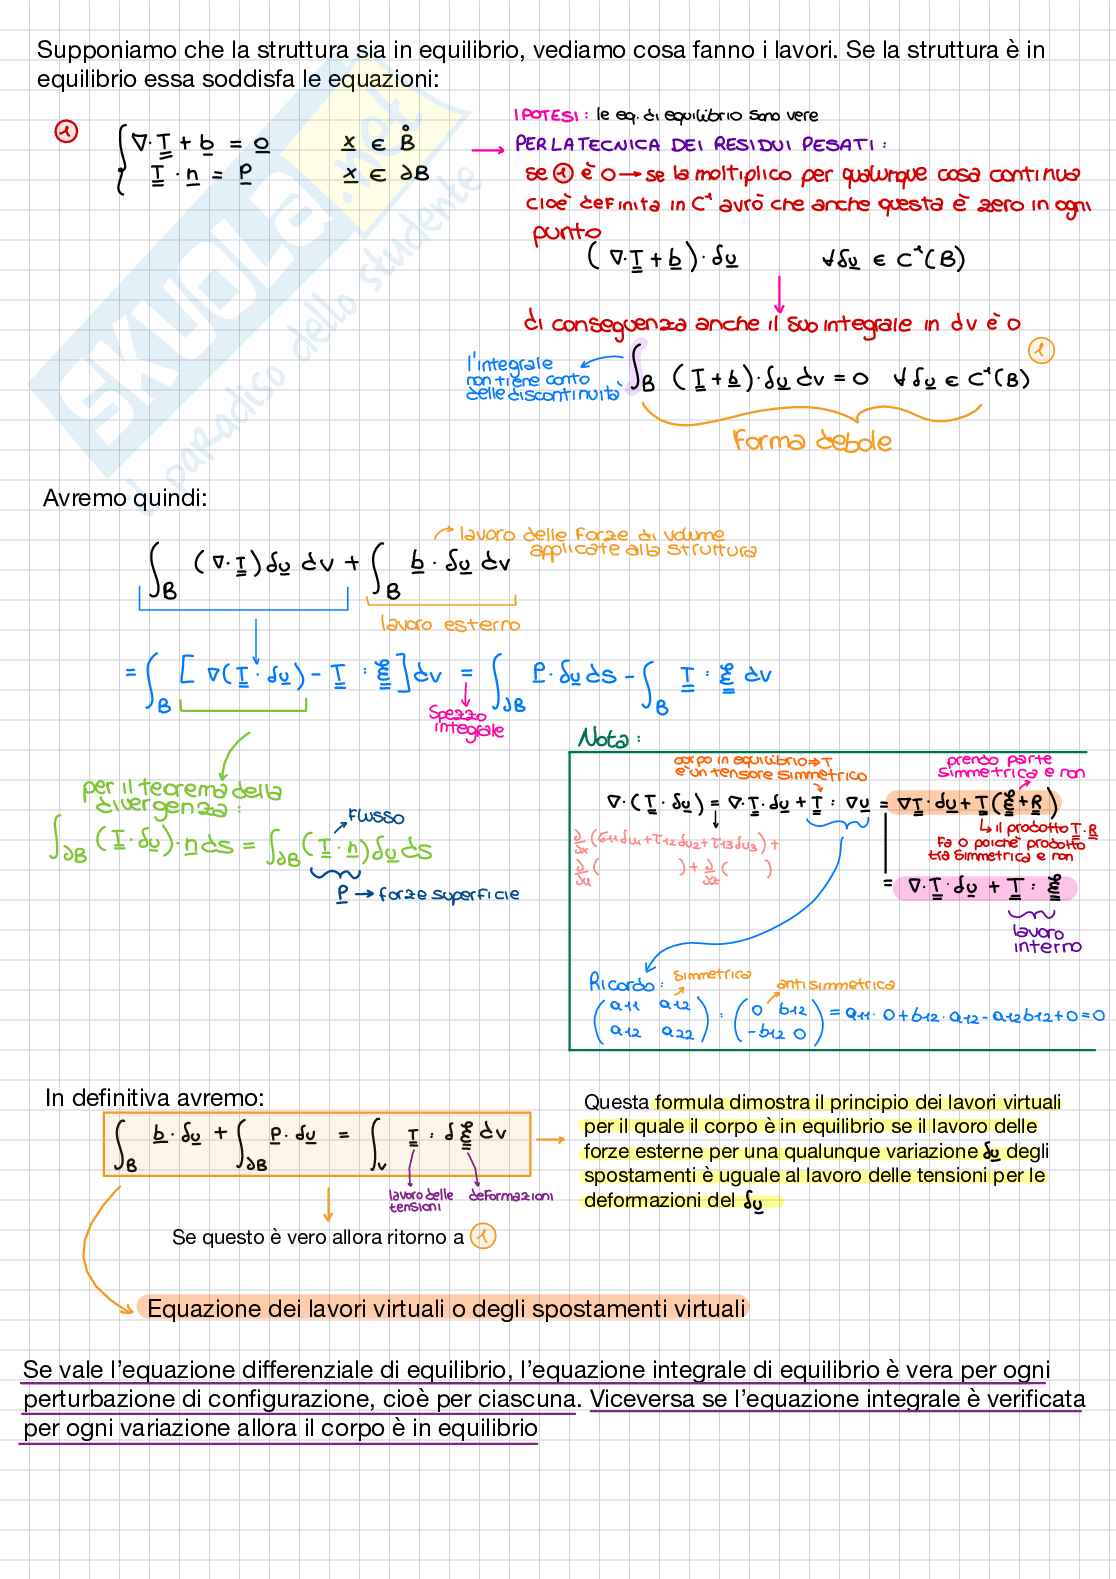 Supponiamo che la struttura sia in equilibrio, vediamo cosa fanno i lavori. Se la struttura è in
equilibrio essa soddisfa le equazioni:
① { ∇·T + b = 0    x ∈ B̊
T · n = P    x ∈ ∂B
→ IPOTESI: le eq. di equilibrio sono vere
PER LA TECNICA DEI RESIDUI PESATI:
se ① è 0 → se la moltiplico per qualunque cosa continua
cioè definita in C¹ avrò che anche questa è zero in ogni
punto
(∇·T + b)·δu    ∀δu ∈ C¹(B)
di conseguenza anche il suo integrale in dv è 0
①
l'integrale
non tiene conto
delle discontinuità
∫B (T + b)·δu dv = 0  ∀ δu ∈ C¹(B)
Forma debole
Avremo quindi:
→ lavoro delle forze di volume
applicate alla struttura
∫B (∇·T) δu dv + ∫B b · δu dv
lavoro esterno
= ∫B [∇(T·δu) - T : ξ] dv = ∫∂B P·δu ds - ∫B T : ξ dv
Spezzo
integrale
per il teorema della
divergenza:
∫∂B (T·δu)·n ds = ∫∂B (T·n) δu ds
Flusso
P → forze superficie
Nota:
corpo in equilibrio ⇒ T
è un tensore simmetrico
prendo parte
simmetrica e non
∇·(T·δu) = ∇·T·δu + T : ∇u = ∇T·δu + T(ξ + R)
∂/∂x (σ11 du1 + τ12 du2 + τ13 du3) +
∂/∂y (    ) + ∂/∂z (    )
↳ il prodotto T·R
fa 0 poichè prodotto
tra simmetrica e non
= ∇·T·δu + T : ξ
lavoro
interno
Ricordo:
simmetrica
antisimmetrica
(a11 a12
a12 a22) : (0 b12
-b12 0) = a11· 0 + b12·a12 - a12b12 + 0 = 0
In definitiva avremo:
∫B b·δu + ∫∂B P·δu = ∫v T : δξ dv
lavoro delle
tensioni
deformazioni
Se questo è vero allora ritorno a ①
Questa formula dimostra il principio dei lavori virtuali
per il quale il corpo è in equilibrio se il lavoro delle
forze esterne per una qualunque variazione δu degli
spostamenti è uguale al lavoro delle tensioni per le
deformazioni del δu
Equazione dei lavori virtuali o degli spostamenti virtuali
Se vale l'equazione differenziale di equilibrio, l'equazione integrale di equilibrio è vera per ogni
perturbazione di configurazione, cioè per ciascuna. Viceversa se l'equazione integrale è verificata
per ogni variazione allora il corpo è in equilibrio
SKUOLA.net
il paradiso dello studente